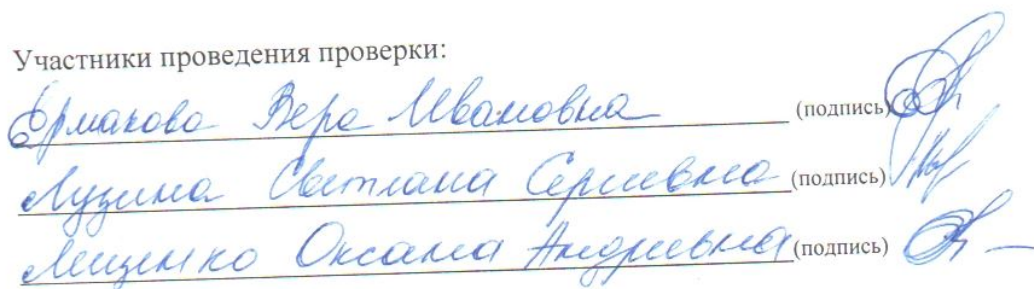 Участники проведения проверки:
Ермакова Вера Ивановна (подпись)
Лузина Светлана Сергиевна (подпись)
Мищенко Оксана Андриевна (подпись)